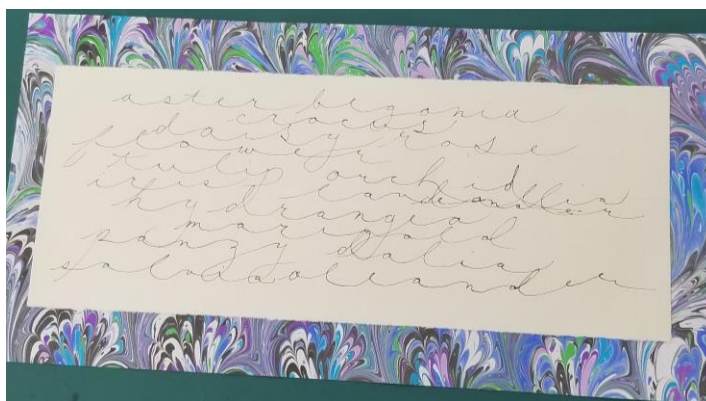 aster begonia
crocus
daisy rose
flower
tulip orchid
iris
hydrangea
marigold
panzy dalia
oleander